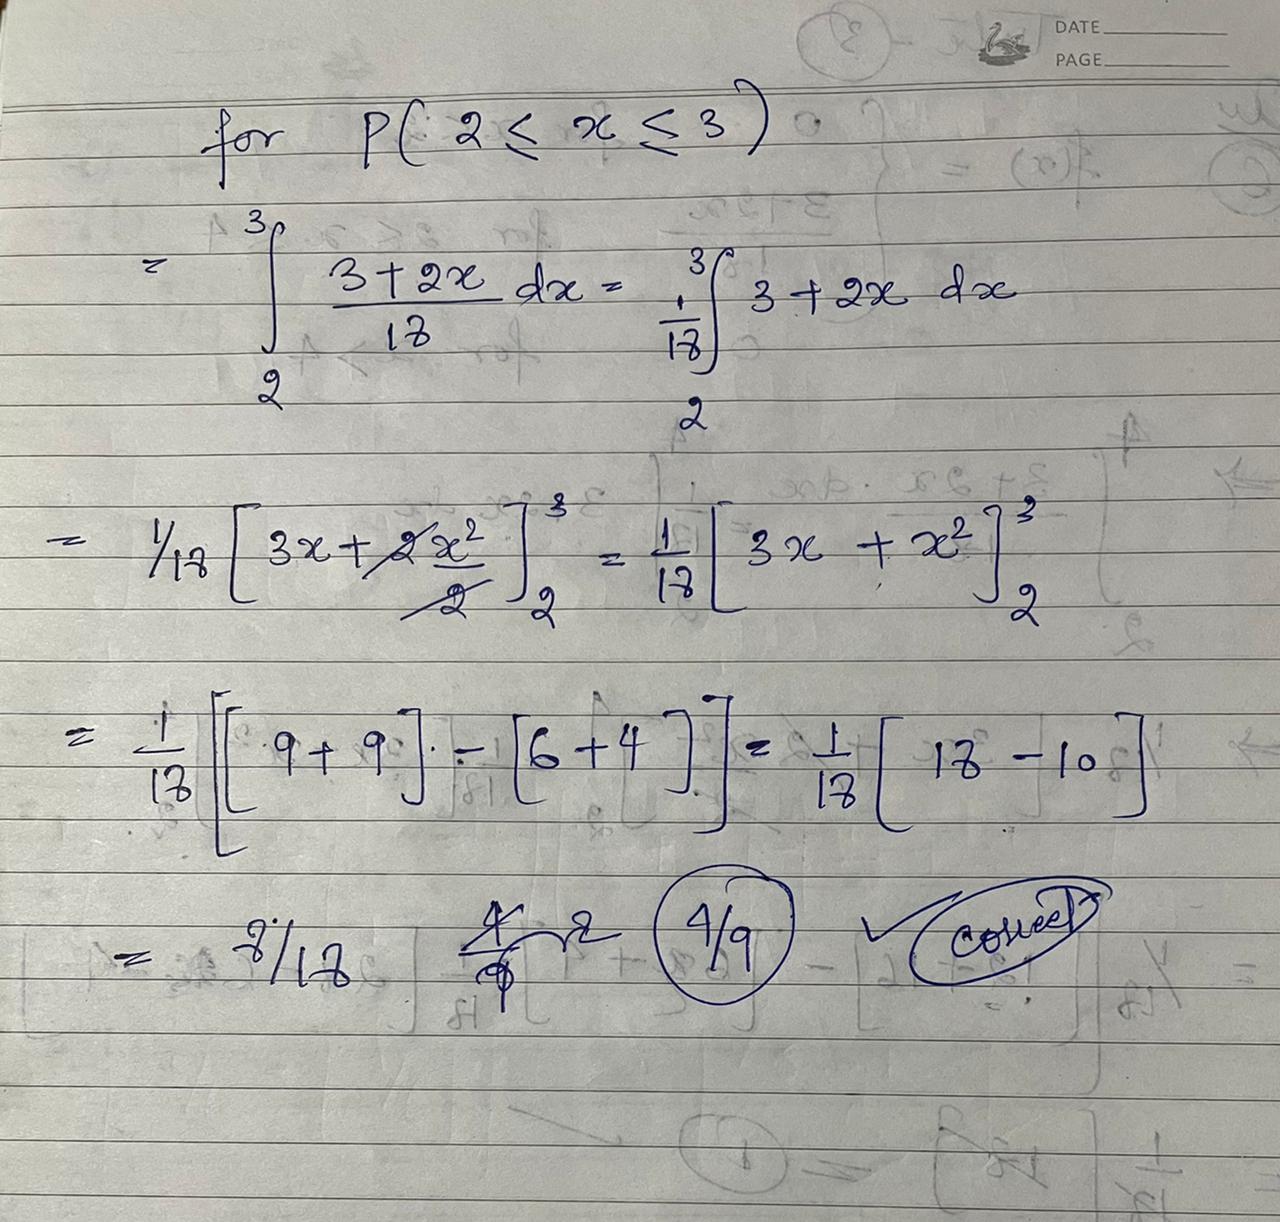 DATE
PAGE
for P( 2 ≤ x ≤ 3 )
= ∫₂³ (3+2x)/18 dx = 1/18 ∫₂³ 3 + 2x dx
= 1/18 [ 3x + 2x²/2 ]₂³ = 1/18 [ 3x + x² ]₂³
= 1/18 [[ 9+9 ] - [6+4]] = 1/18 [ 18 - 10 ]
= 8/18 4/9 ✓ correct